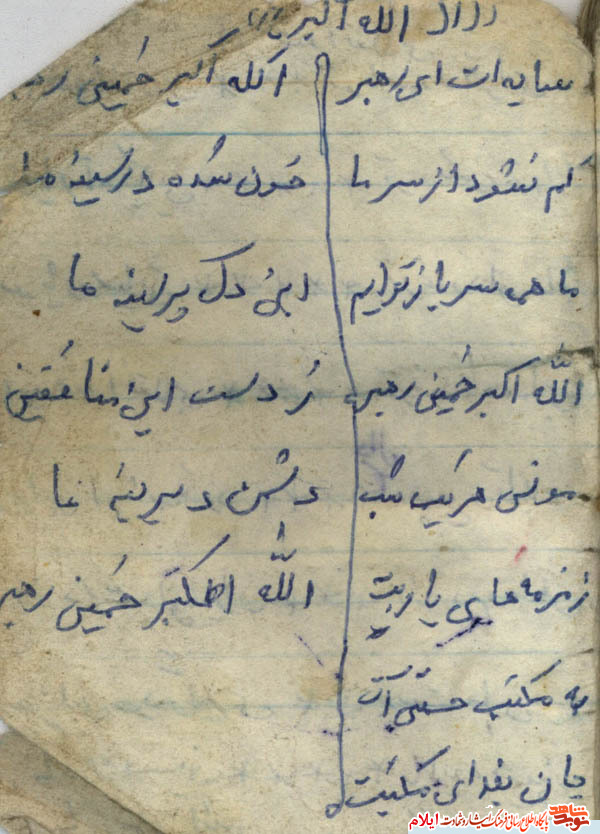 الله اکبر
سایه ات ای رهبر
کم نشود از سر ما
ما همه سرباز توایم
الله اکبر خمینی رهبر
مونس هر یک شب
زمزمه های یا ربت
به مکتب حسینی ات
جان بفدای مکتبت
الله اکبر خمینی رهبر
خون شده در سینه ما
این دل پر کینه ما
ز دست این منافقین
دشمن دیرینه ما
الله اکبر خمینی رهبر
نوید شاهد
پایگاه اطلاع رسانی فرهنگ ایثار و شهادت ایلام